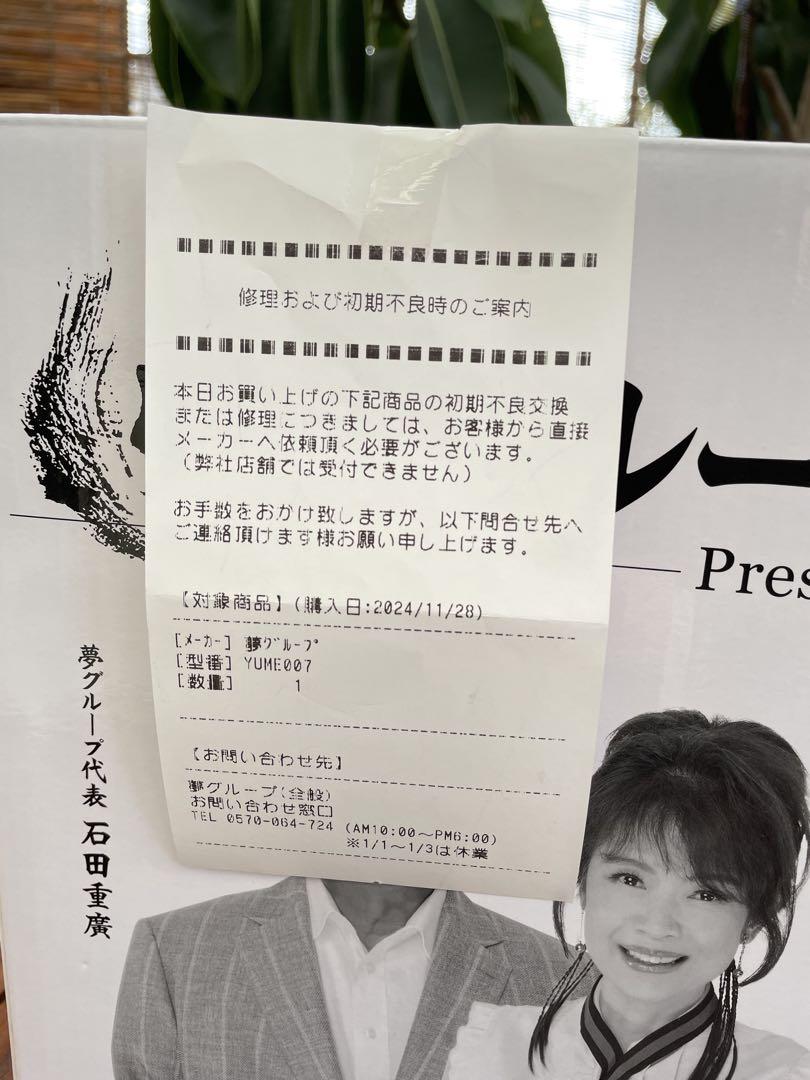 修理および初期不良時のご案内
本日お買い上げの下記商品の初期不良交換
または修理につきましては、お客様から直接
メーカーへ依頼頂く必要がございます。
（弊社店舗では受付できません）
お手数をおかけ致しますが、以下問合せ先へ
ご連絡頂けます様お願い申し上げます。
【対象商品】(購入日:2024/11/28)
[ﾒｰｶｰ] 夢ｸﾞﾙｰﾌﾟ
[型番] YUME007
[数量] 1
【お問い合わせ先】
夢グループ(全般)
お問い合わせ窓口
TEL 0570-064-724 (AM10:00～PM6:00)
※1/1～1/3は休業
ルー
Pres
夢グループ代表 石田重廣